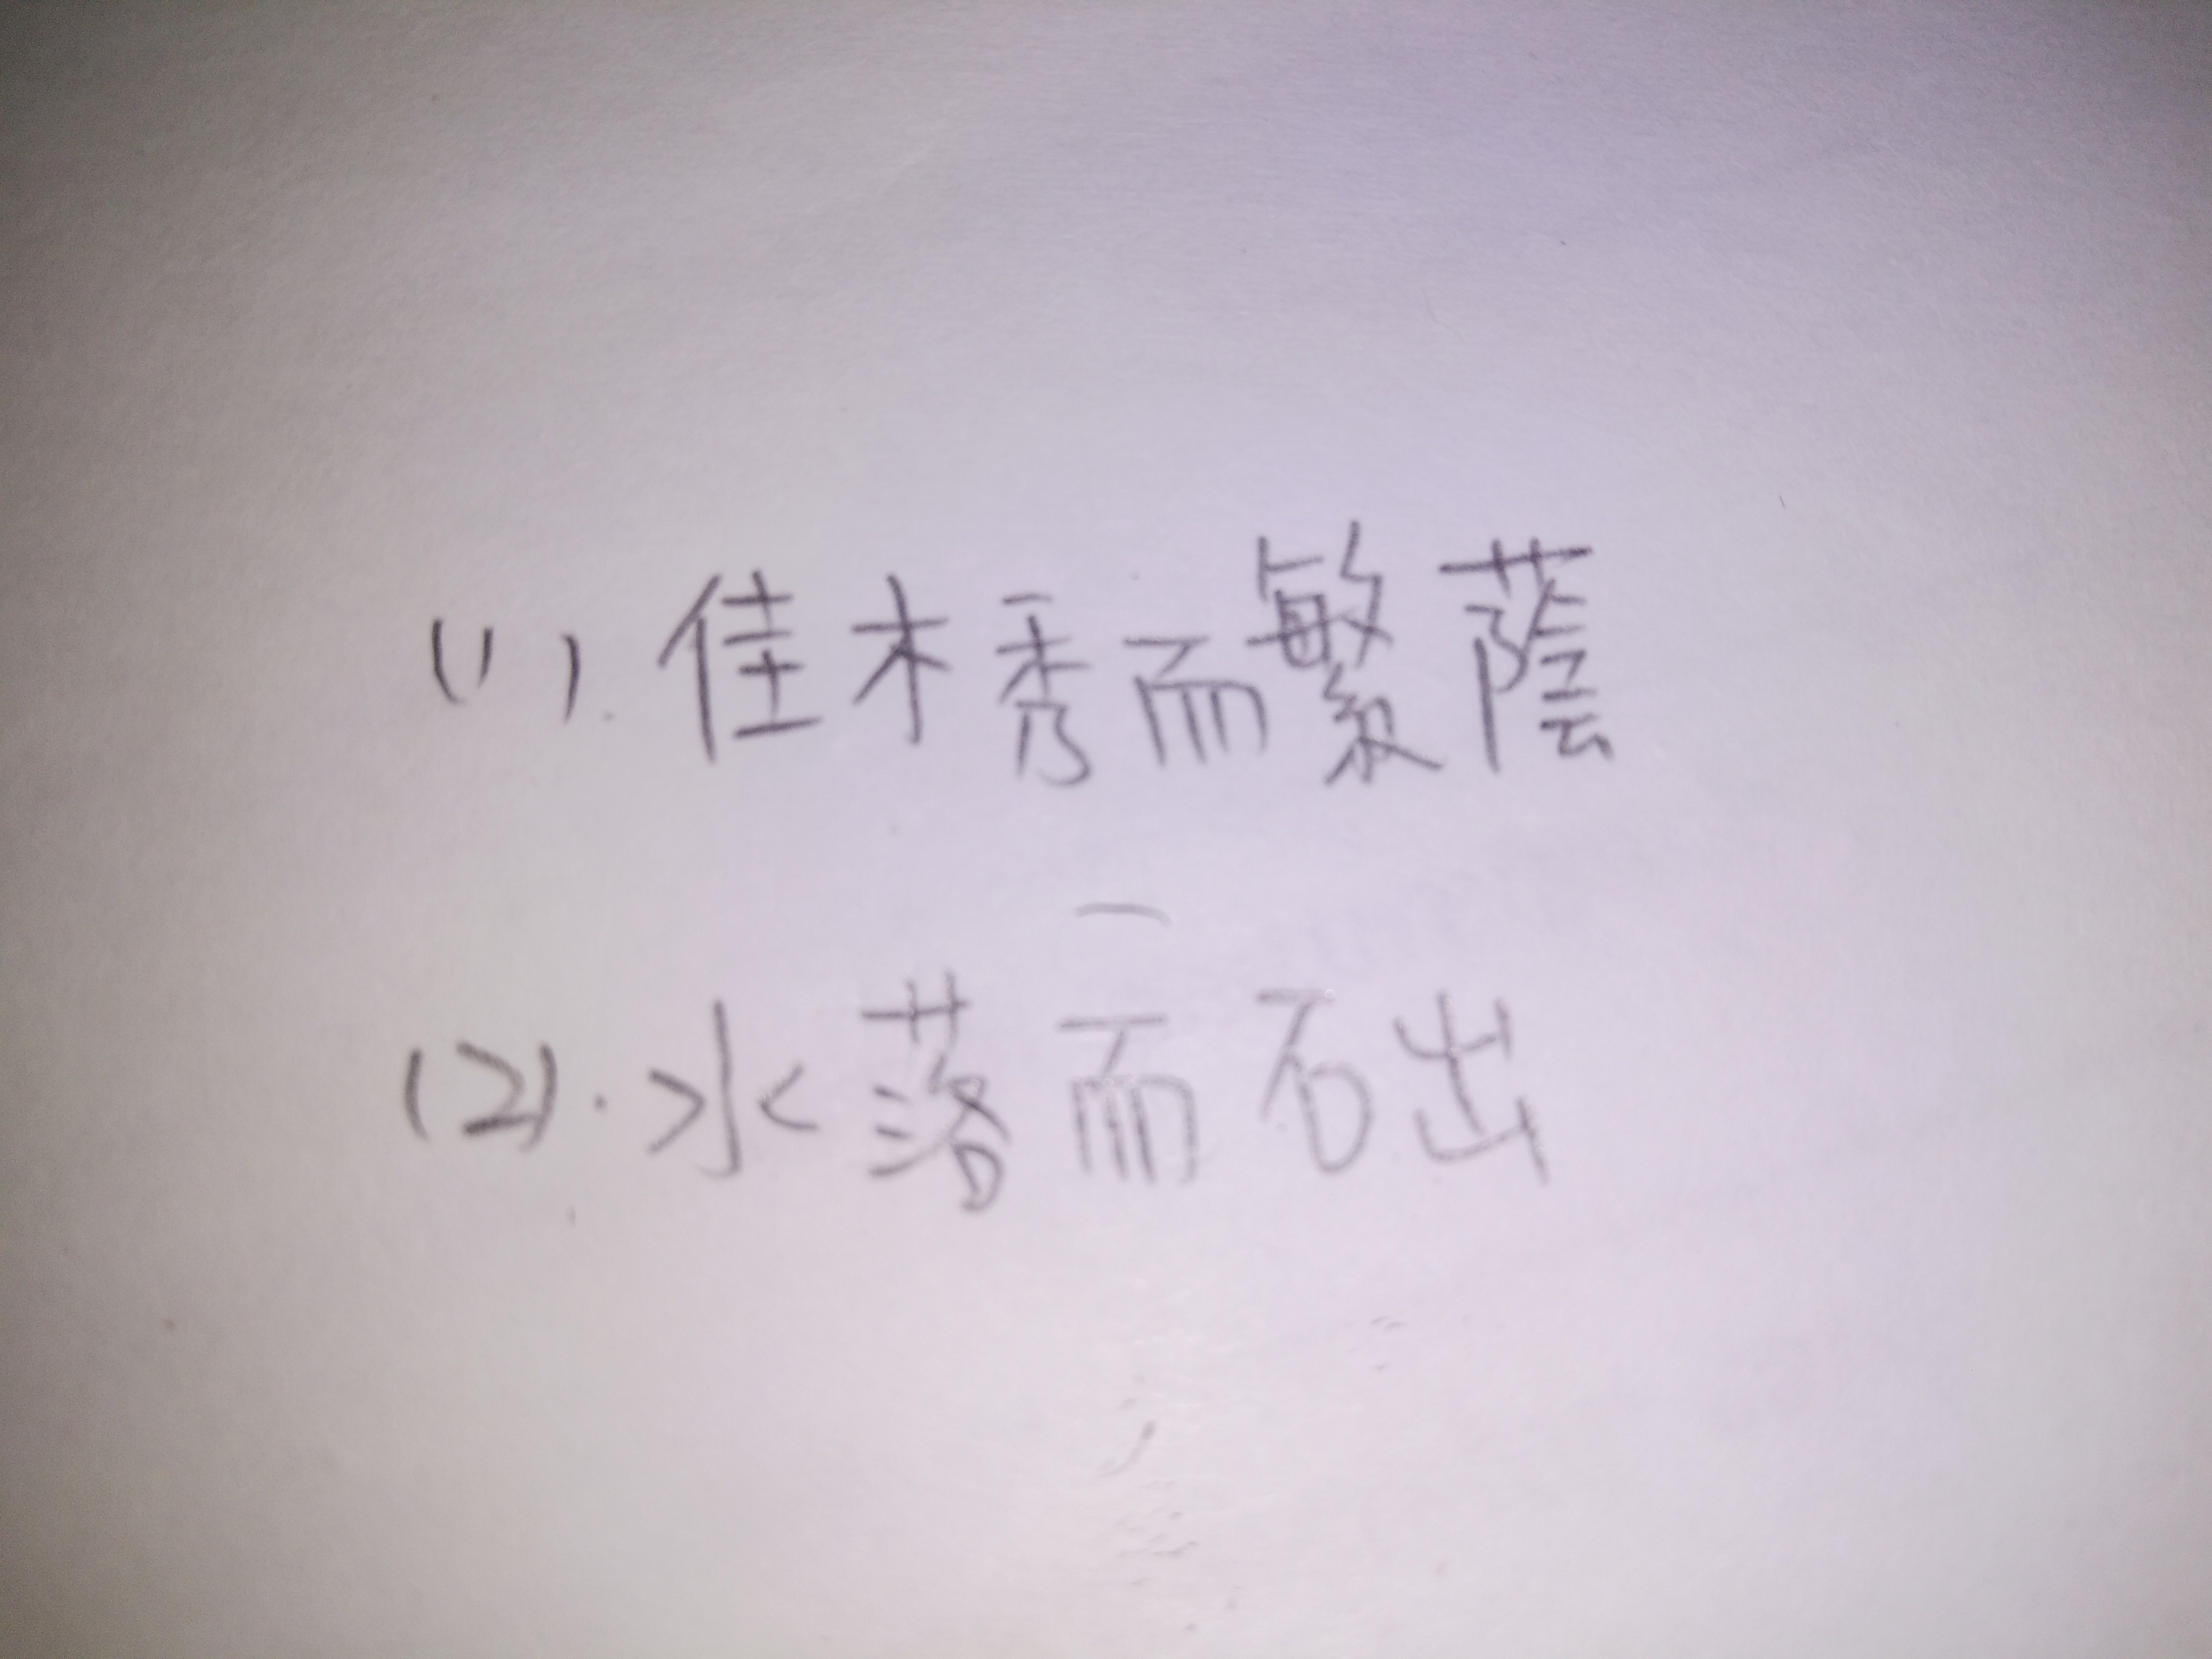 (1). 佳木秀而繁蔭
(2). 水落而石出